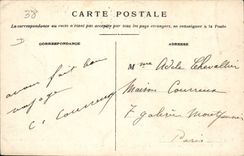 38
CARTE POSTALE
La correspondance au recto n'étant pas acceptée par tous les pays étrangers, se renseigner à la Poste
CORRESPONDANCE
ADRESSE
avons fait bon
voyage
C. Courreux
Mme Adèle Chevallier
Maison Courreux
7 galerie Montpensier
Paris